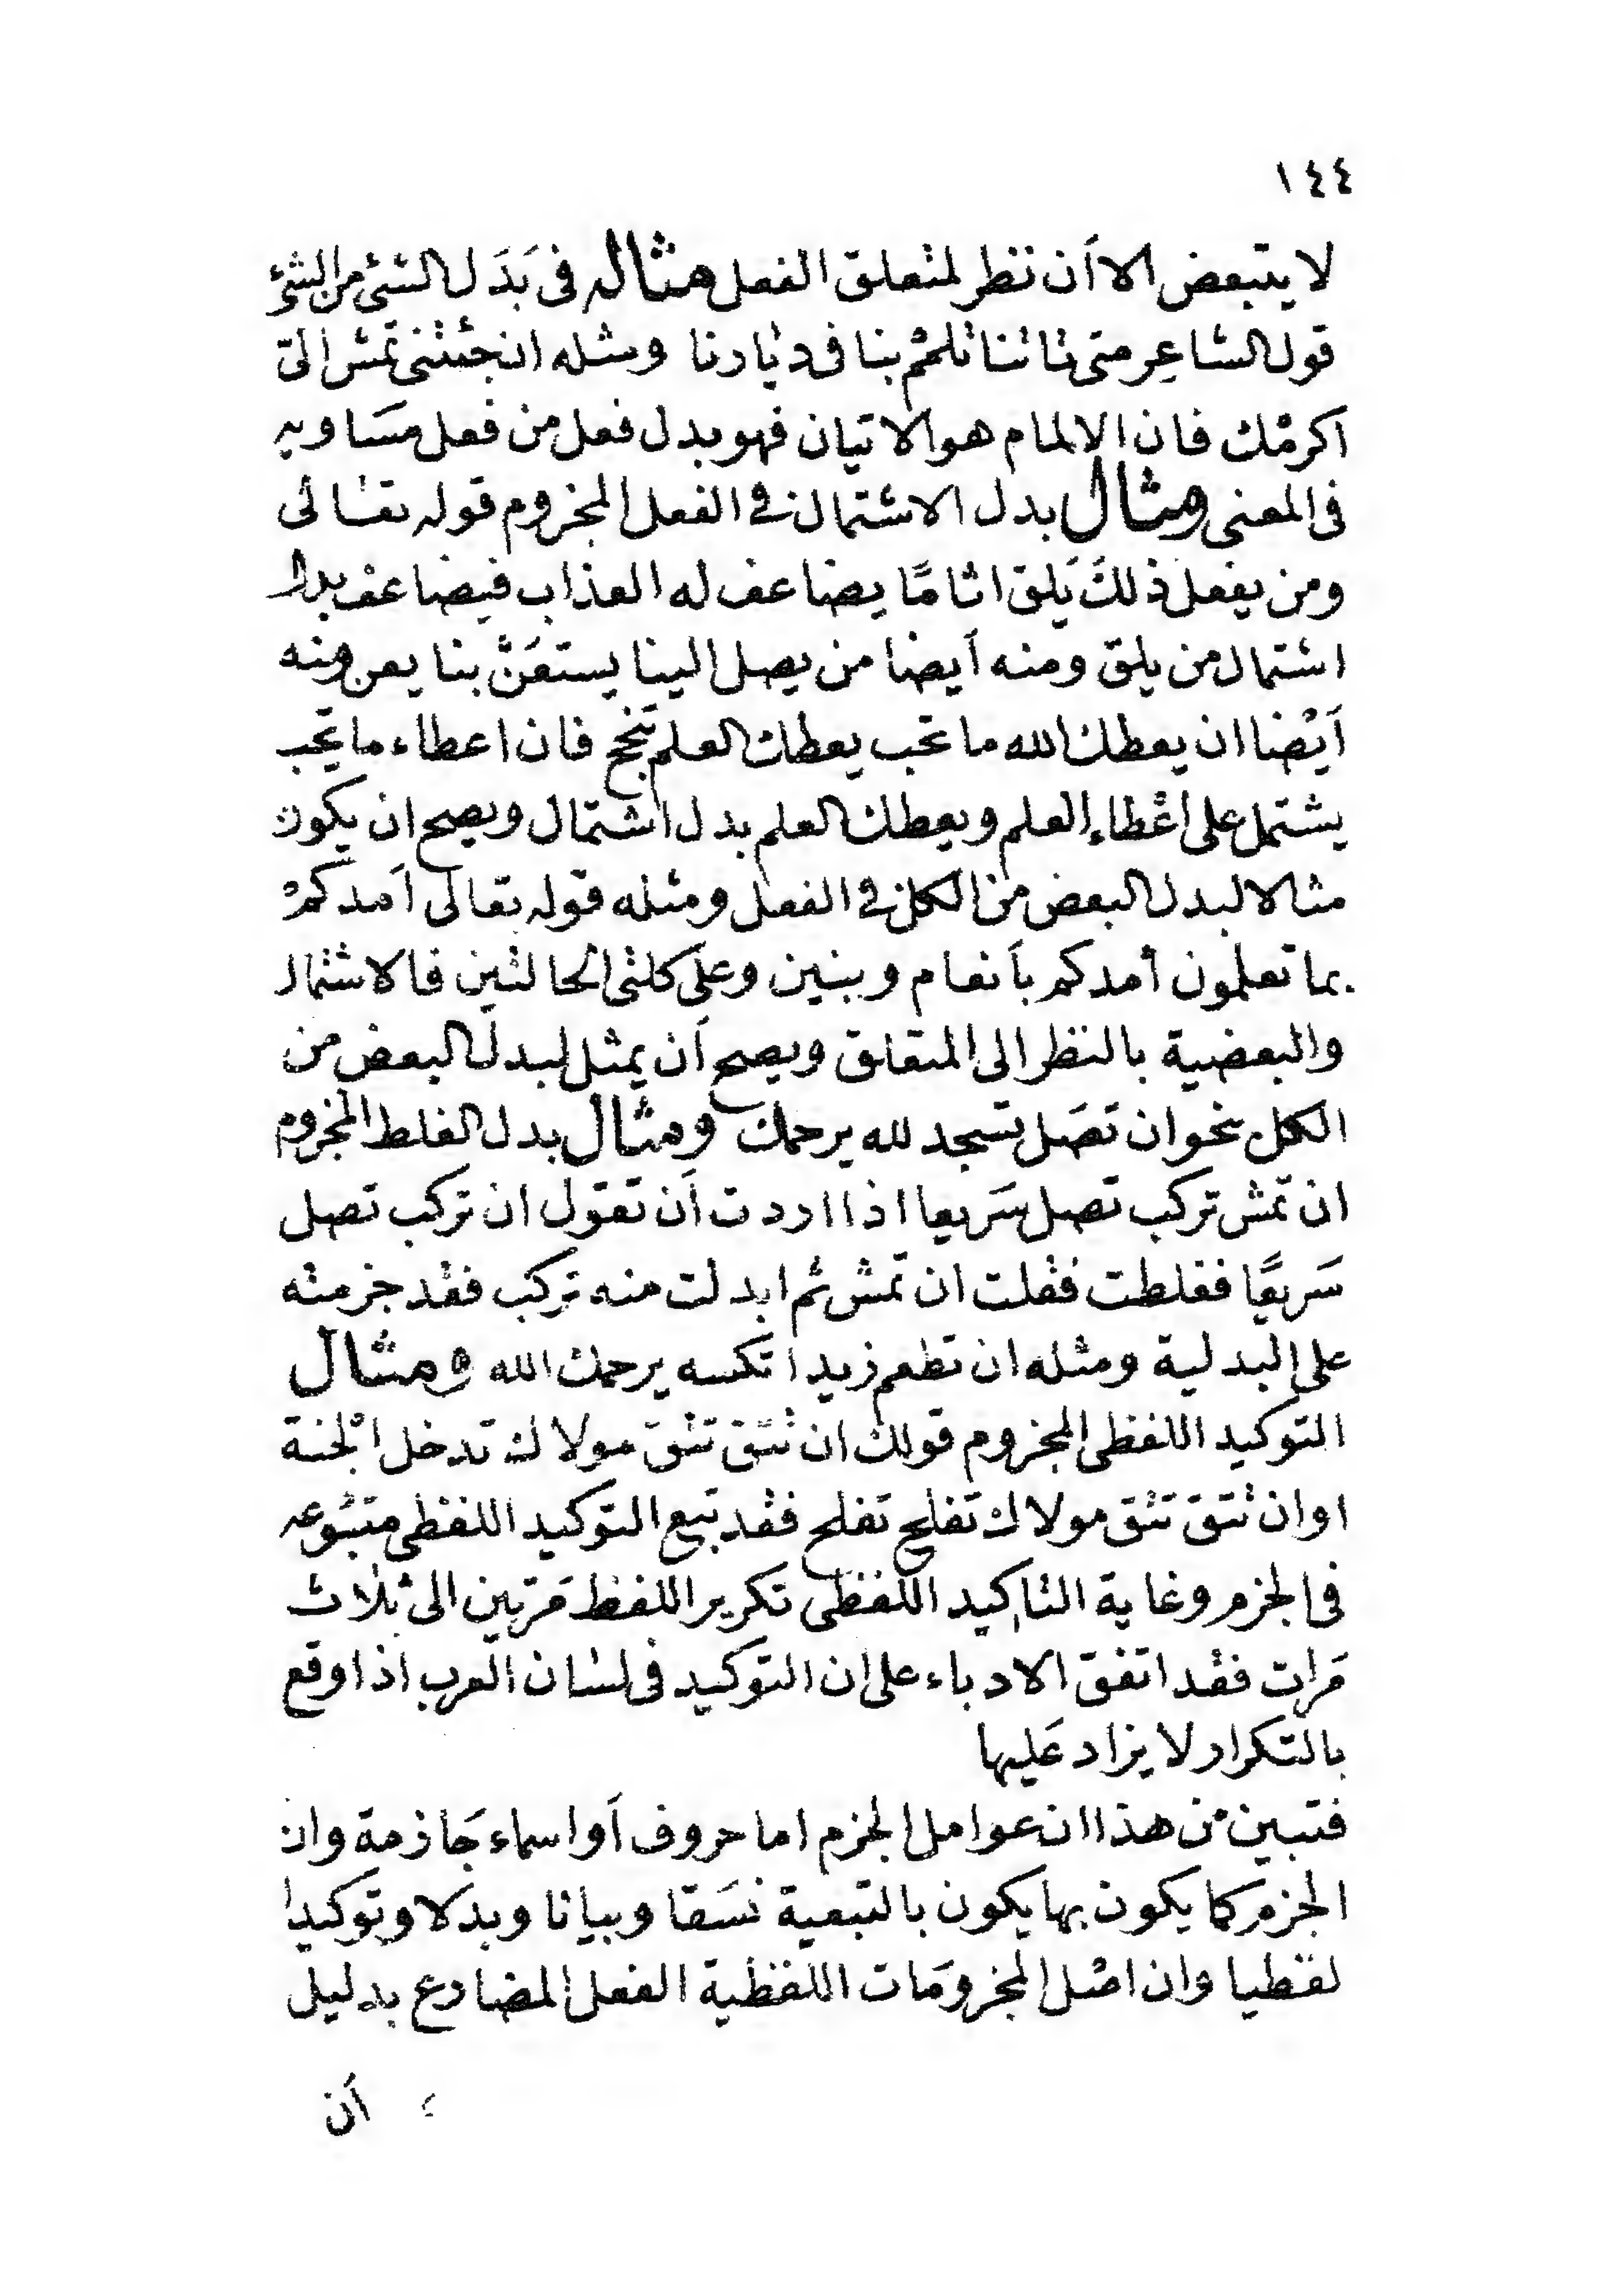 ١٤٤
لا يتبعض الا أن تنظر لمتعلق الفعل مثاله فى بَدَل الشئ من الشئ
قول الشاعِر متى تاتنا تلمم بنا فى ديارنا ومثله ان جئتنى تمش الىّ
أكرمك فان الالمام هو الاتيان فهو بدل فعل من فعل مسَاويه
فى المعنى ومثال بدل الاشتمال فى الفعل المجزوم قوله تعالى
ومن يفعل ذلكَ يَلق اثامًا يضاعف له العذاب فيضاعف بدل
اشتمال من يلق ومنه أيضا من يصل الينا يستعَن بنا يعن ومنه
أيْضا ان يعطك الله ما تحب يعطك العلم تنجح فان اعطاء ما تحب
يشتمل على اعْطاء العلم ويعطك العلم بدل اشتمال ويصح ان يكون
مثالا لبدل البعض من الكل فى الفعل ومثله قوله تعالى أمدكمْ
بما تعلمون أمدكم بأنعام وبنين وعلى كلتى الحالتين فالاشتمال
والبعضية بالنظر الى المتعلق ويصح أن يمثل لبدل البعض من
الكل نحو ان تصَل تسجد لله يرحمك ومثال بدل الغلط المجزوم
ان تمش تركب تصل سَريعا اذا اردت أن تقول ان تركب تصل
سَريعًا فغلطت فقلت ان تمش ثم ابدلت منه تركب فقد جزمته
على البدلية ومثله ان تطعم زيدا تكسه يرحمك الله ومثال
التوكيد اللفظى المجزوم قولك ان تتق تتق مولاك تدخل الجنة
او ان تتق تتق مولاك تفلح تفلح فقد تبع التوكيد اللفظى متبوعه
فى الجزم وغاية التاكيد اللفظى تكرير اللفظ مَرتين الى ثلاث
مَرات فقد اتفق الادباء على ان التوكيد فى لسان العرب اذا وقع
بالتكرار لا يزاد عَليها
فتبين من هذا ان عوامل الجزم اما حروف أو اسماء جَازمة وان
الجزم كما يكون بها يكون بالتبعية نسَقا وبيانا وبدلا وتوكيدا
لفظيا وان اصْل المجزومَات اللفظية الفعل المضارع بدليل
أن